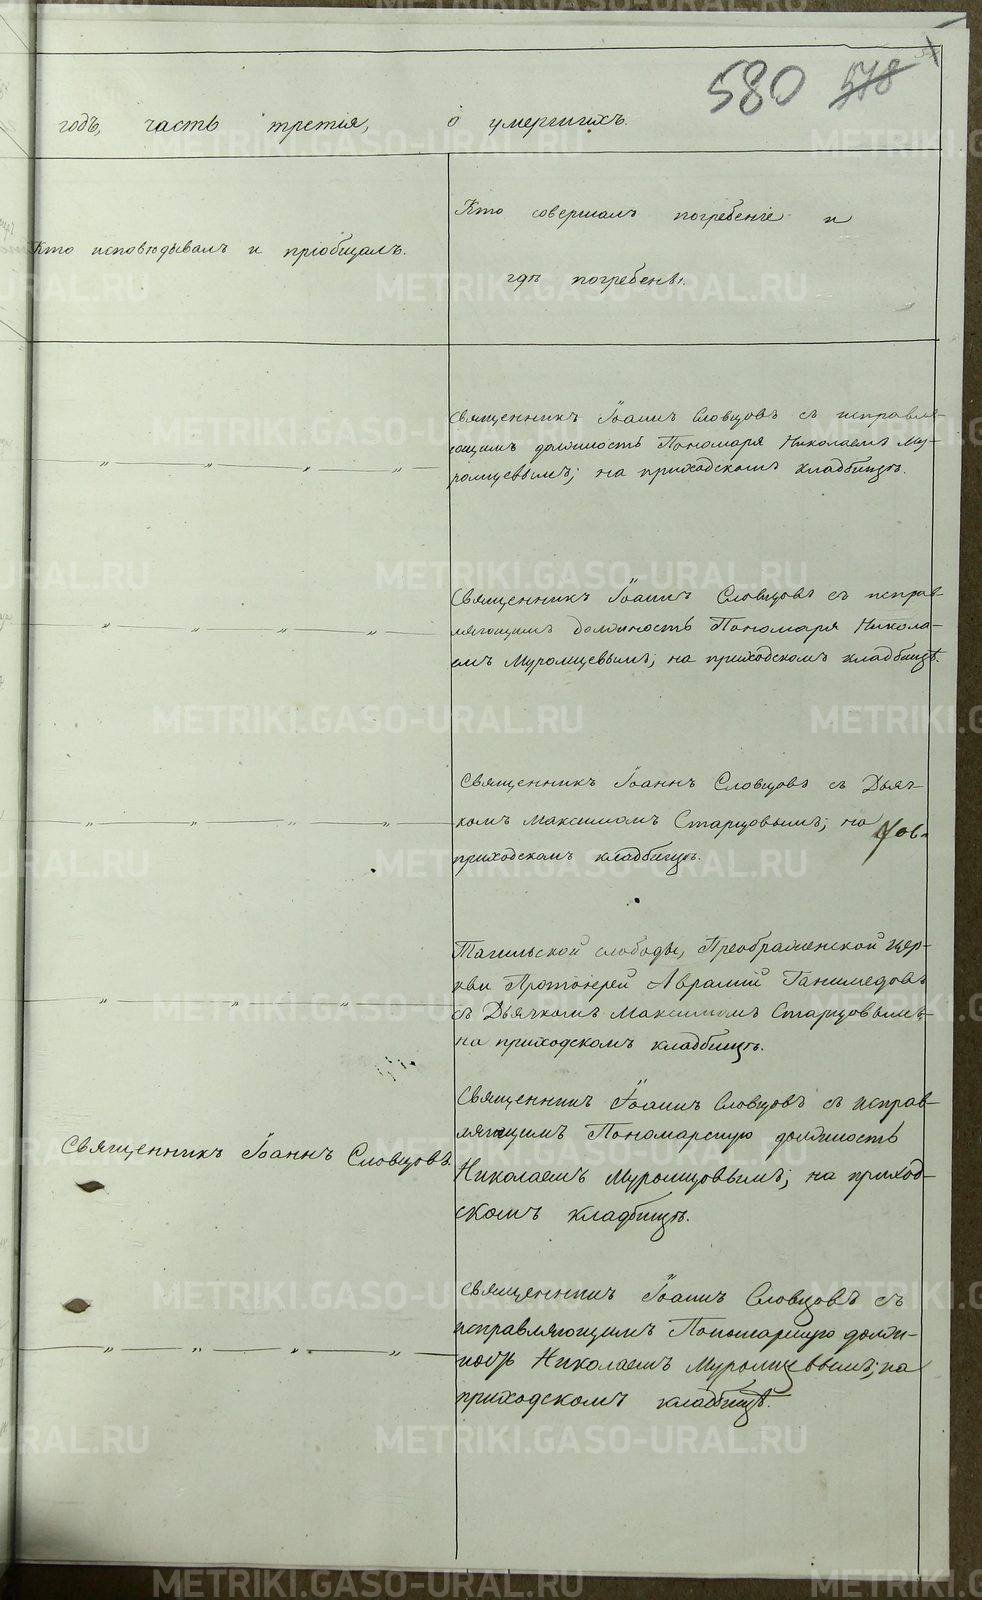 580 578
годъ, часть третія, о умершихъ.
Кто исповѣдывалъ и пріобщалъ.
Кто совершалъ погребеніе и
гдѣ погребены.
Священникъ Іоаннъ Словцовъ съ исправля-
ющимъ должность Пономаря Николаемъ Му-
ромцевымъ; на приходскомъ кладбищѣ.
— „ — „ — „ — „ —
Священникъ Іоаннъ Словцовъ съ исправ-
ляющимъ должность Пономаря Никола-
емъ Муромцевымъ; на приходскомъ кладбищѣ.
— „ — „ — „ — „ —
Священникъ Іоаннъ Словцовъ съ Дьяч-
комъ Максимомъ Старцовымъ; на
приходскомъ кладбищѣ.
— „ — „ — „ — „ —
Тагильской слободы, Преображенской цер-
кви Протоіерей Аврамій Ганимедовъ
съ Дьячкомъ Максимомъ Старцовымъ
на приходскомъ кладбищѣ.
— „ — „ — „ —
Священникъ Іоаннъ Словцовъ.
Священникъ Іоаннъ Словцовъ съ исправ-
ляющимъ Пономарскую должность
Николаемъ Муромцовымъ; на приход-
скомъ кладбищѣ.
Священникъ Іоаннъ Словцовъ съ
исправляющимъ Пономарскую долж-
ность Николаемъ Муромцевымъ; на
приходскомъ кладбищѣ.
— „ — „ — „ — „ —
METRIKI.GASO-URAL.RU